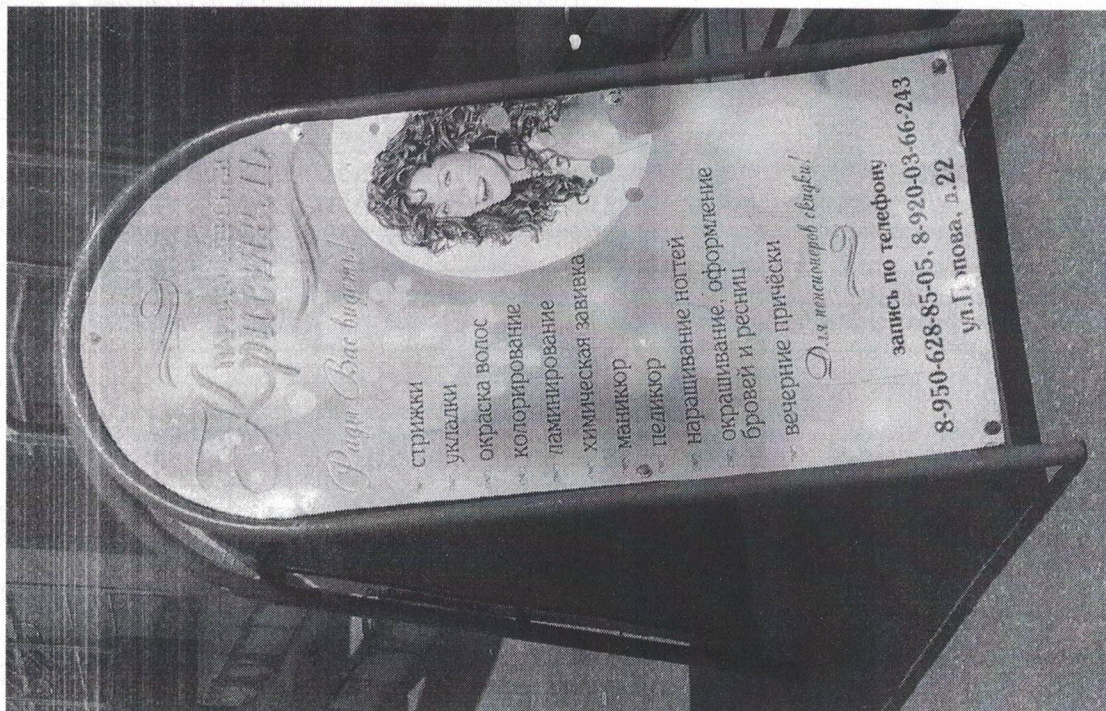 Кристалл
Рады Вас видеть!
стрижки
укладки
окраска волос
колорирование
ламинирование
химическая завивка
маникюр
педикюр
наращивание ногтей
окрашивание, оформление
бровей и ресниц
вечерние причёски
Для пенсионеров скидки!
запись по телефону
8-950-628-85-05, 8-920-03-66-243
ул. д.22